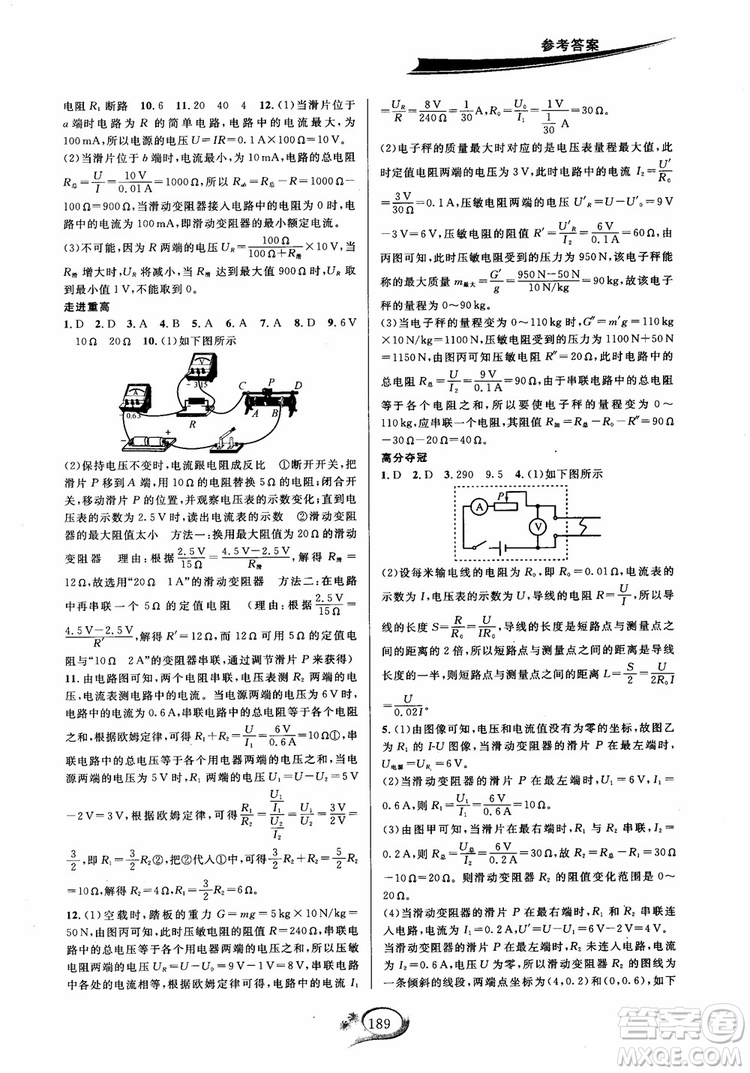 参考答案
电阻 R₁ 断路 10. 6 11. 20 40 4 12. (1)当滑片位于
a 端时电路为 R 的简单电路，电路中的电流最大，为
100mA，所以电源的电压 U=IR=0.1A×
(2)当滑片位于 b 端时，电流最小，电路的总电阻
R总=U/I=10V/0.01A=1000Ω，所以 Rab=R总-R=1000Ω
-100Ω=900Ω，当滑动变阻器接入电路中的电阻为 0 时，电
路中的电流为 100mA，即滑动变阻器的最小额定电流。
(3)不可能，因为 R 两端的电压 UR=100Ω/(100Ω+R滑)×10V，当
R滑 增大时，UR 减小，当 R滑 达到最大值 900Ω 时，UR 达到
最小值 1V，不可能达到 0。
走进重高
1. D 2. D 3. A 4. B 5. A 6. A 7. A 8. D 9. 6V
10Ω 20Ω 10. (1)如下图所示
- 3 15 C P D
A B
- 0.6 3 R
(2)保持电压不变时，电流跟电阻成反比 ①断开开关，把
滑片 P 移到 A 端，用 10Ω 的电阻替换 5Ω 的电阻；闭合开
关，移动滑片 P，并观察电压表的示数变化；直到电压表的
示数为 2.5V 时，读出电流表的示数 ②滑动变阻器的最
大阻值太小 方法一：换用最大阻值更大的滑动
变阻器 理由：2.5V/15Ω=(4.5V-2.5V)/R滑，解得 R滑=
12Ω，故选用“20Ω 1A”的滑动变阻器 方法二：在电路
中再串联一个 5Ω 的定值电阻 (理由：2.5V/15Ω=
(4.5V-2.5V)/R′，解得 R′=12Ω，可以用一个 5Ω 的定值电
阻与“10Ω 2A”的变阻器串联，通过调节滑片 P 实现)
11. 由电路图可知，两个电阻串联，电压表测 R₂ 两端的电
压，电流表测电路中的电流。当电源两端的电压为 6V 时，
电路中的电流为 0.6A，串联电路中的总电阻等于各个用
电器电阻之和，即可得 R₁+R₂=U/I₁=6V/0.6A=10Ω①，串
联电路中的总电压等于各个用电器两端的电压之和，当电
源两端的电压为 5V 时，R₁ 两端的电压 U₁=U-U₂=5V
-2V=3V，根据欧姆定律，可得 R₁/R₂=(U₁/I₂)/(U₂/I₂)=U₁/U₂=3V/2V=
3/2，即 R₁=3/2 R₂②，把②代入①中，可得 3/2 R₂+R₂=10Ω，
解得 R₂=4Ω，R₁=3/2 R₂=3/2×4Ω=6Ω。
12. (1)空载时，踏板的重力 G=mg=5kg×10N/kg=
50N，由丙图可知，此时压敏电阻的阻值 R=240Ω，串联电
路中的总电压等于各个用电器两端的电压之和，所以压敏
电阻两端的电压为 UR=U-U₀=9V-1V=8V，串联电路
中各处的电流相等，根据欧姆定律可得，电路中的电流 I₁
=UR/R=8V/240Ω=1/30 A，R₀=U₀/I₁=1V/(1/30 A)=30Ω。
(2)电子秤的质量最大时对应的是电压表量程最大值，此
时定值电阻两端的电压为 3V，此时电路中的电流 I₂=U′/R₀
=3V/30Ω=0.1A，压敏电阻两端的电压 U′R=U-U′=9V
-3V=6V，压敏电阻的阻值 R′=U′R/I₂=6V/0.1A=60Ω，由
丙图可知，此时压敏电阻受到的压力为 950N，该电子秤能
称的最大质量 m最大=G′/g=(950N-50N)/10N/kg=90kg，故该电子
秤的量程为 0～90kg。
(3)当电子秤的量程变为 0～110kg 时，G″=m′g=110kg
×10N/kg=1100N，压敏电阻受到的压力为 1100N+50N
=1150N，由图丙可知，压敏电阻的阻值为 50Ω，电路中的
总电阻 R总=U/I₂=9V/0.1A=90Ω，由于串联电路中的总电阻
等于各个电阻之和，所以要使电子秤的量程变为 0～
110kg，应串联一个电阻，其阻值 R串=R总-R₀-R=90Ω
-30Ω-50Ω=10Ω。
高分夺冠
1. D 2. D 3. 290 9.5 4. (1)如下图所示
A P V
(2)设每米输电线的电阻为 R₀，即 R₀=0.01Ω，电流表的
示数为 I，电压表的示数为 U，则导线的电阻 R=U/I，所以
导线的长度 S=R/R₀=U/IR₀，导线的长度是短路点与测量点之
间距离的 2 倍，所以短路点与测量点之间的距离等于导线
长度的一半，即短路位置离测量点的距离 L=S/2=U/2R₀I
=U/0.02I。
5. (1)由图像可知，电压和电流值没有为零的坐标，故图乙
为 R₁ 的 I-U 图像，当滑动变阻器的滑片 P 在最左端时，
U电源=UR₁=6V。
(2)当滑动变阻器的滑片 P 在最左端时，U₁=6V，I₁=
0.6A，则 R₁=U₁/I₁=6V/0.6A=10Ω。
(3)由图甲可知，当滑片在最右端时，R₁ 与 R₂ 串联，I₂=
0.2A，则 R总=U总/I₂=6V/0.2A=30Ω，所以滑动变阻器 R₂=
R总-R₁=20Ω，所以滑动变阻器 R₂ 的阻值变化范围是 0～
20Ω。
(4)当滑动变阻器的滑片 P 在最右端时，R₁、R₂ 串联连
入电路，电流为 I₂=0.2A，电压为 U₂=6V-2V=4V。
当滑动变阻器的滑片 P 在最左端时，R₂ 未连入电路，电流
为 I₁=0.6A，U₂=0，所以滑动变阻器 R₂ 的 I-U 图像为
一条倾斜的线段，两端点坐标为(4，0.2)和(0，0.6)，如下
189
答案圈
MXQE.COM